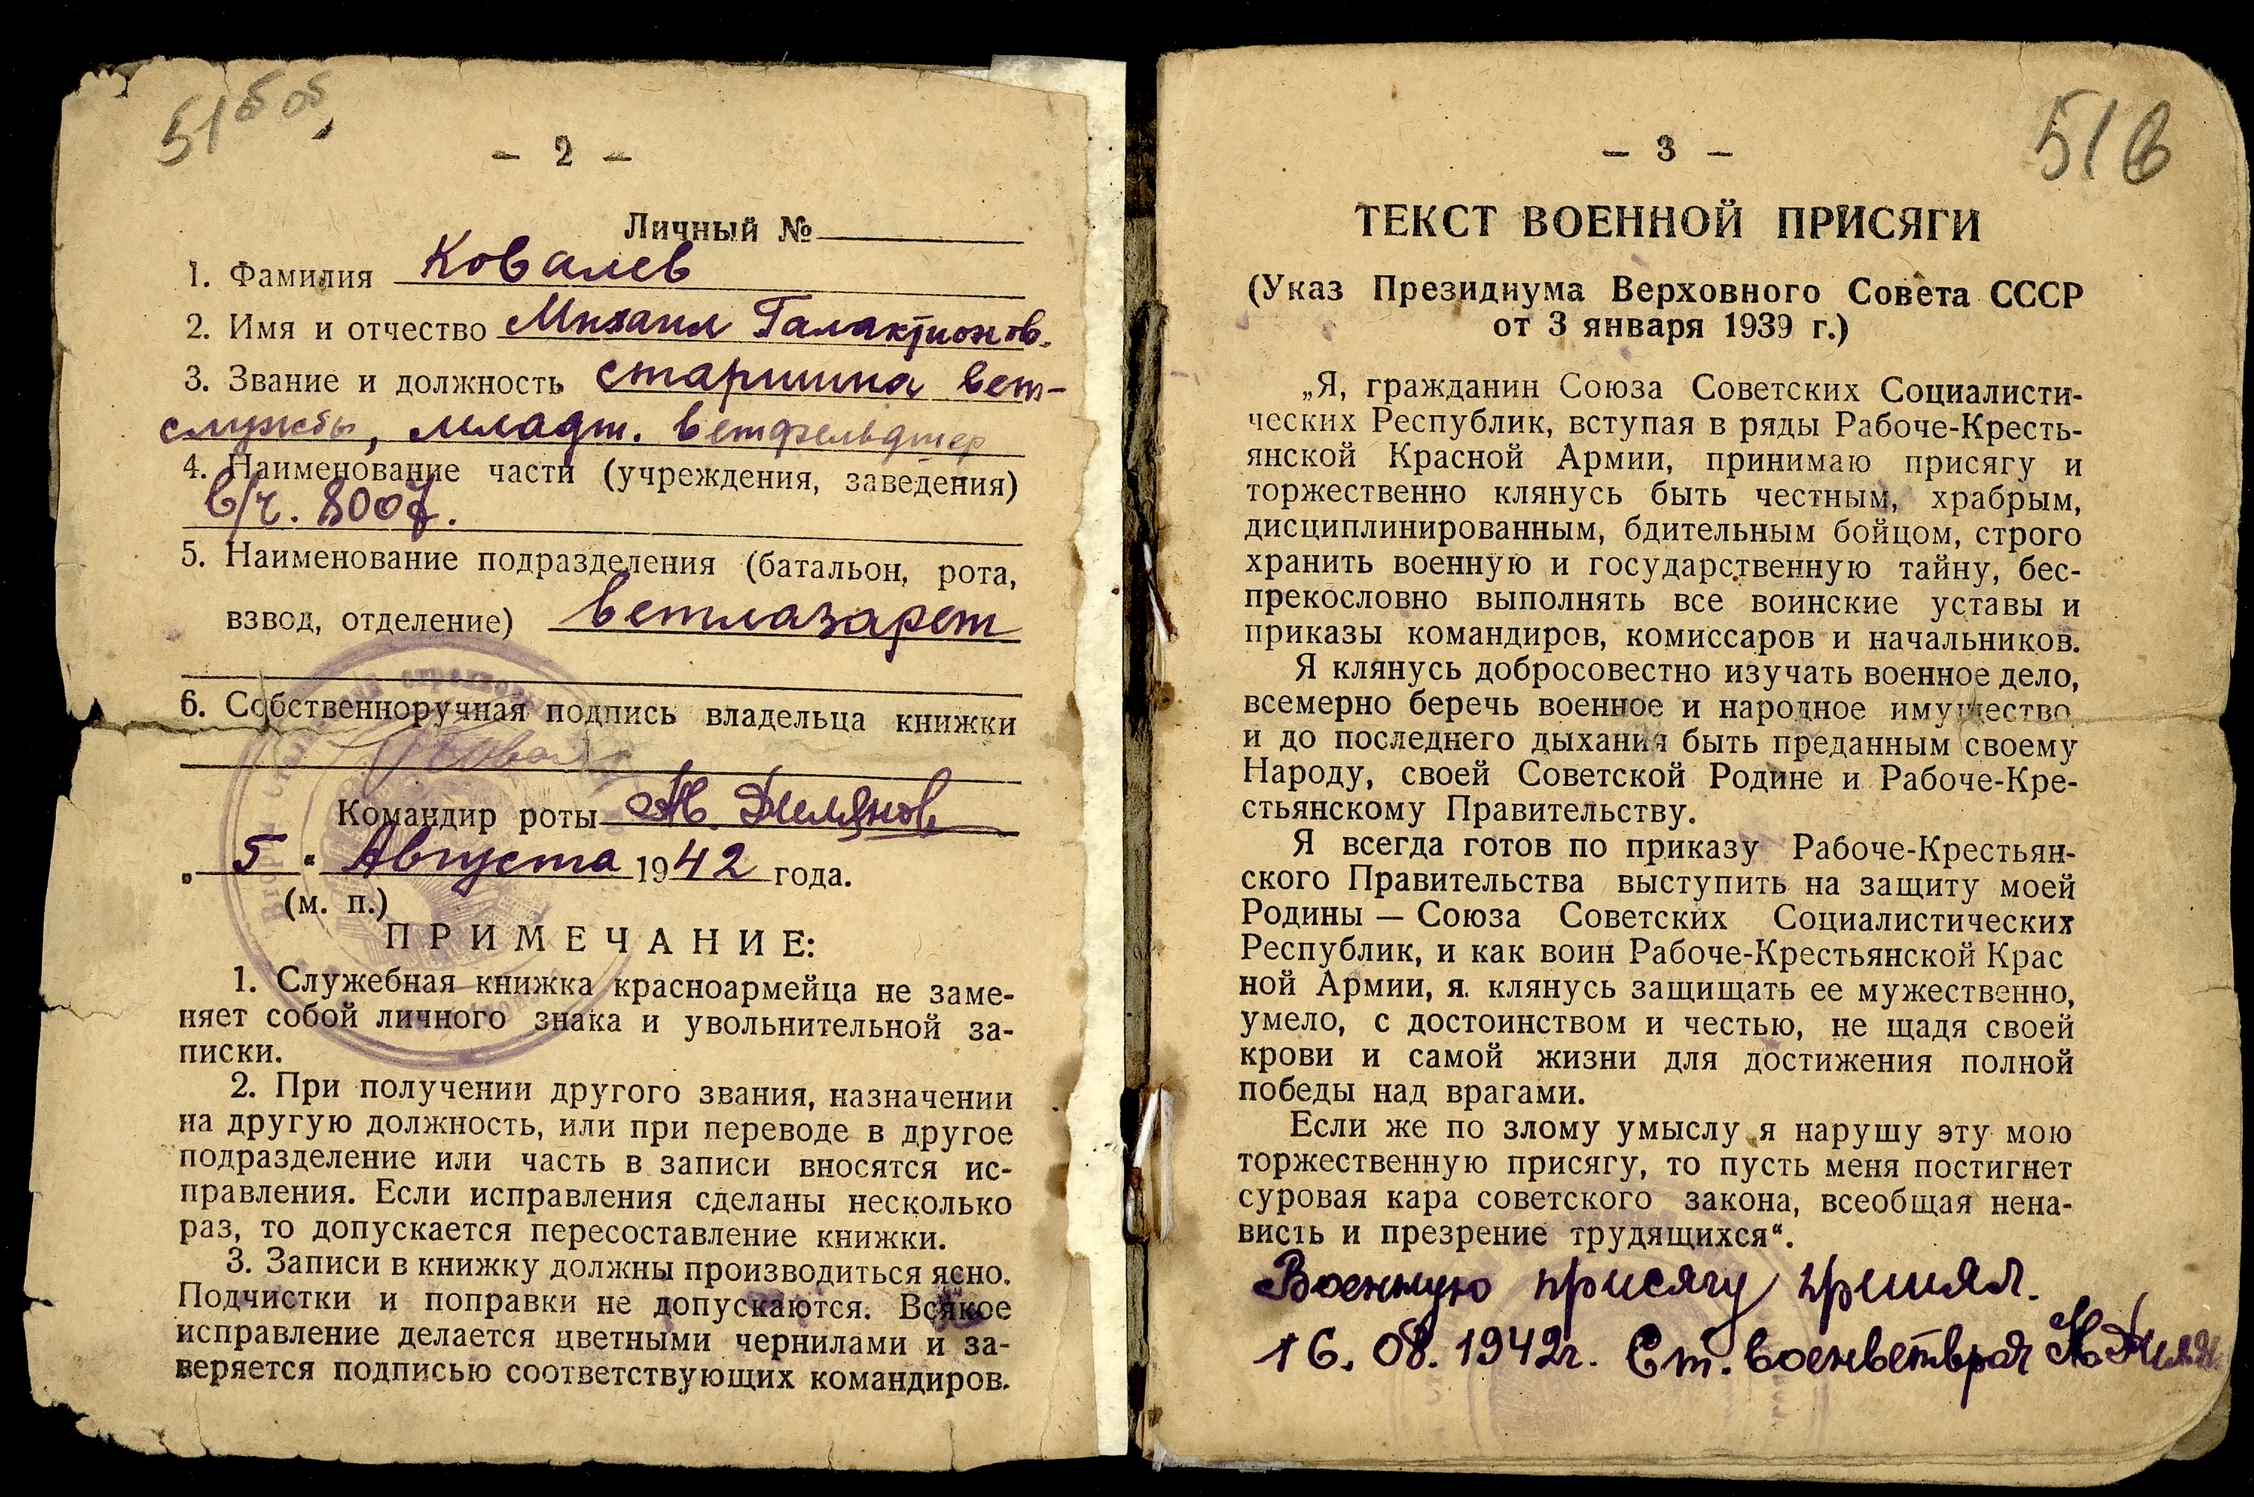 51
– 2 –
Личный №
1. Фамилия Ковалев
2. Имя и отчество Михаил Галактионов.
3. Звание и должность старшина вет-
службы, младш. ветфельдшер
4. Наименование части (учреждения, заведения)
в/ч. 8007.
5. Наименование подразделения (батальон, рота,
взвод, отделение) ветлазарет
6. Собственноручная подпись владельца книжки
Командир роты
„ 5 “ Августа 1942 года.
(м. п.)
ПРИМЕЧАНИЕ:
1. Служебная книжка красноармейца не заме-
няет собой личного знака и увольнительной за-
писки.
2. При получении другого звания, назначении
на другую должность, или при переводе в другое
подразделение или часть в записи вносятся ис-
правления. Если исправления сделаны несколько
раз, то допускается пересоставление книжки.
3. Записи в книжку должны производиться ясно.
Подчистки и поправки не допускаются. Всякое
исправление делается цветными чернилами и за-
веряется подписью соответствующих командиров.
51в
– 3 –
ТЕКСТ ВОЕННОЙ ПРИСЯГИ
(Указ Президиума Верховного Совета СССР
от 3 января 1939 г.)
„Я, гражданин Союза Советских Социалисти-
ческих Республик, вступая в ряды Рабоче-Кресть-
янской Красной Армии, принимаю присягу и
торжественно клянусь быть честным, храбрым,
дисциплинированным, бдительным бойцом, строго
хранить военную и государственную тайну, бес-
прекословно выполнять все воинские уставы и
приказы командиров, комиссаров и начальников.
Я клянусь добросовестно изучать военное дело,
всемерно беречь военное и народное имущество
и до последнего дыхания быть преданным своему
Народу, своей Советской Родине и Рабоче-Кре-
стьянскому Правительству.
Я всегда готов по приказу Рабоче-Крестьян-
ского Правительства выступить на защиту моей
Родины — Союза Советских Социалистических
Республик, и как воин Рабоче-Крестьянской Крас
ной Армии, я клянусь защищать ее мужественно,
умело, с достоинством и честью, не щадя своей
крови и самой жизни для достижения полной
победы над врагами.
Если же по злому умыслу я нарушу эту мою
торжественную присягу, то пусть меня постигнет
суровая кара советского закона, всеобщая нена-
висть и презрение трудящихся“.
Военную присягу принял.
16. 08. 1942г. Ст. военветврач